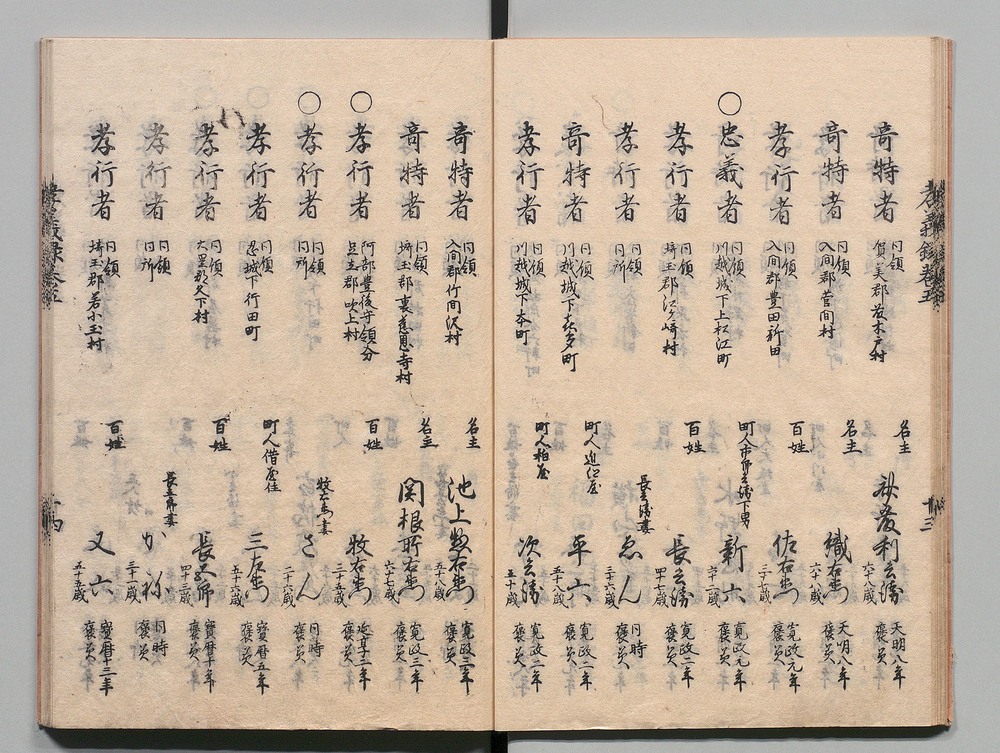 奇特者 同領 賀美郡 名主 利兵衛 六十八歳 天明八年 褒美
奇特者 同領 入間郡菅間村 名主 織右衛門 六十八歳 天明八年 褒美
孝行者 同領 入間郡豊田新田 百姓 佐右衛門 三十七歳 寛政元年 褒美
○忠義者 同領 川越城下上松江町 町人市郎兵衛下男 新六 六十二歳 寛政元年 褒美
孝行者 同領 埼玉郡江ヶ崎村 百姓 長兵衛 四十七歳 寛政二年 褒美
孝行者 同領 同所 長兵衛妻 ゑん 三十六歳 同時 褒美
奇特者 同領 川越城下喜多町 町人近江屋 平六 五十八歳 寛政二年 褒美
孝行者 同領 川越城下本町 町人柏屋 次兵衛 五十歳 寛政二年 褒美
孝義録巻五 十三
奇特者 同領 入間郡竹間沢村 名主 池上惣右衛門 五十八歳 寛政三年 褒美
奇特者 同領 埼玉郡裏慈恩寺村 名主 関根所右衛門 六十七歳 寛政三年 褒美
○孝行者 阿部豊後守領分 足立郡吹上村 百姓 牧右衛門 三十五歳 延享三年 褒美
○孝行者 同領 同所 牧右衛門妻 さん 二十八歳 同時 褒美
孝行者 同領 忍城下行田町 町人借屋住 三左衛門 五十六歳 宝暦五年 褒美
孝行者 同領 大里郡久下村 百姓 長五郎 四十二歳 宝暦十年 褒美
孝行者 同領 同所 長五郎妻 かね 三十一歳 同時 褒美
孝行者 同領 埼玉郡若小玉村 百姓 又六 五十五歳 宝暦十三年 褒美
孝義録巻五 十四